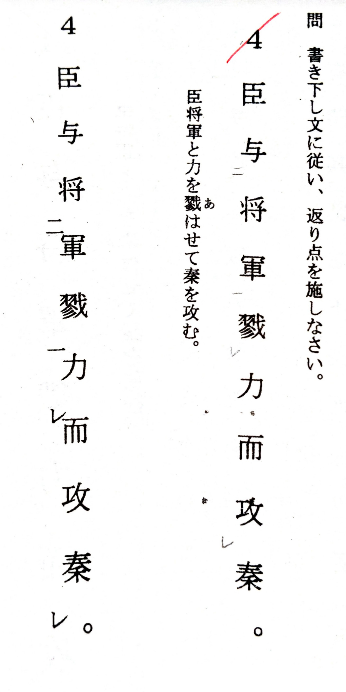 問 書き下し文に従い、返り点を施しなさい。
4 臣与二将軍一戮レ力而攻レ秦。
臣将軍と力を戮あはせて秦を攻む。
4 臣与将二軍戮一力レ而攻秦レ。